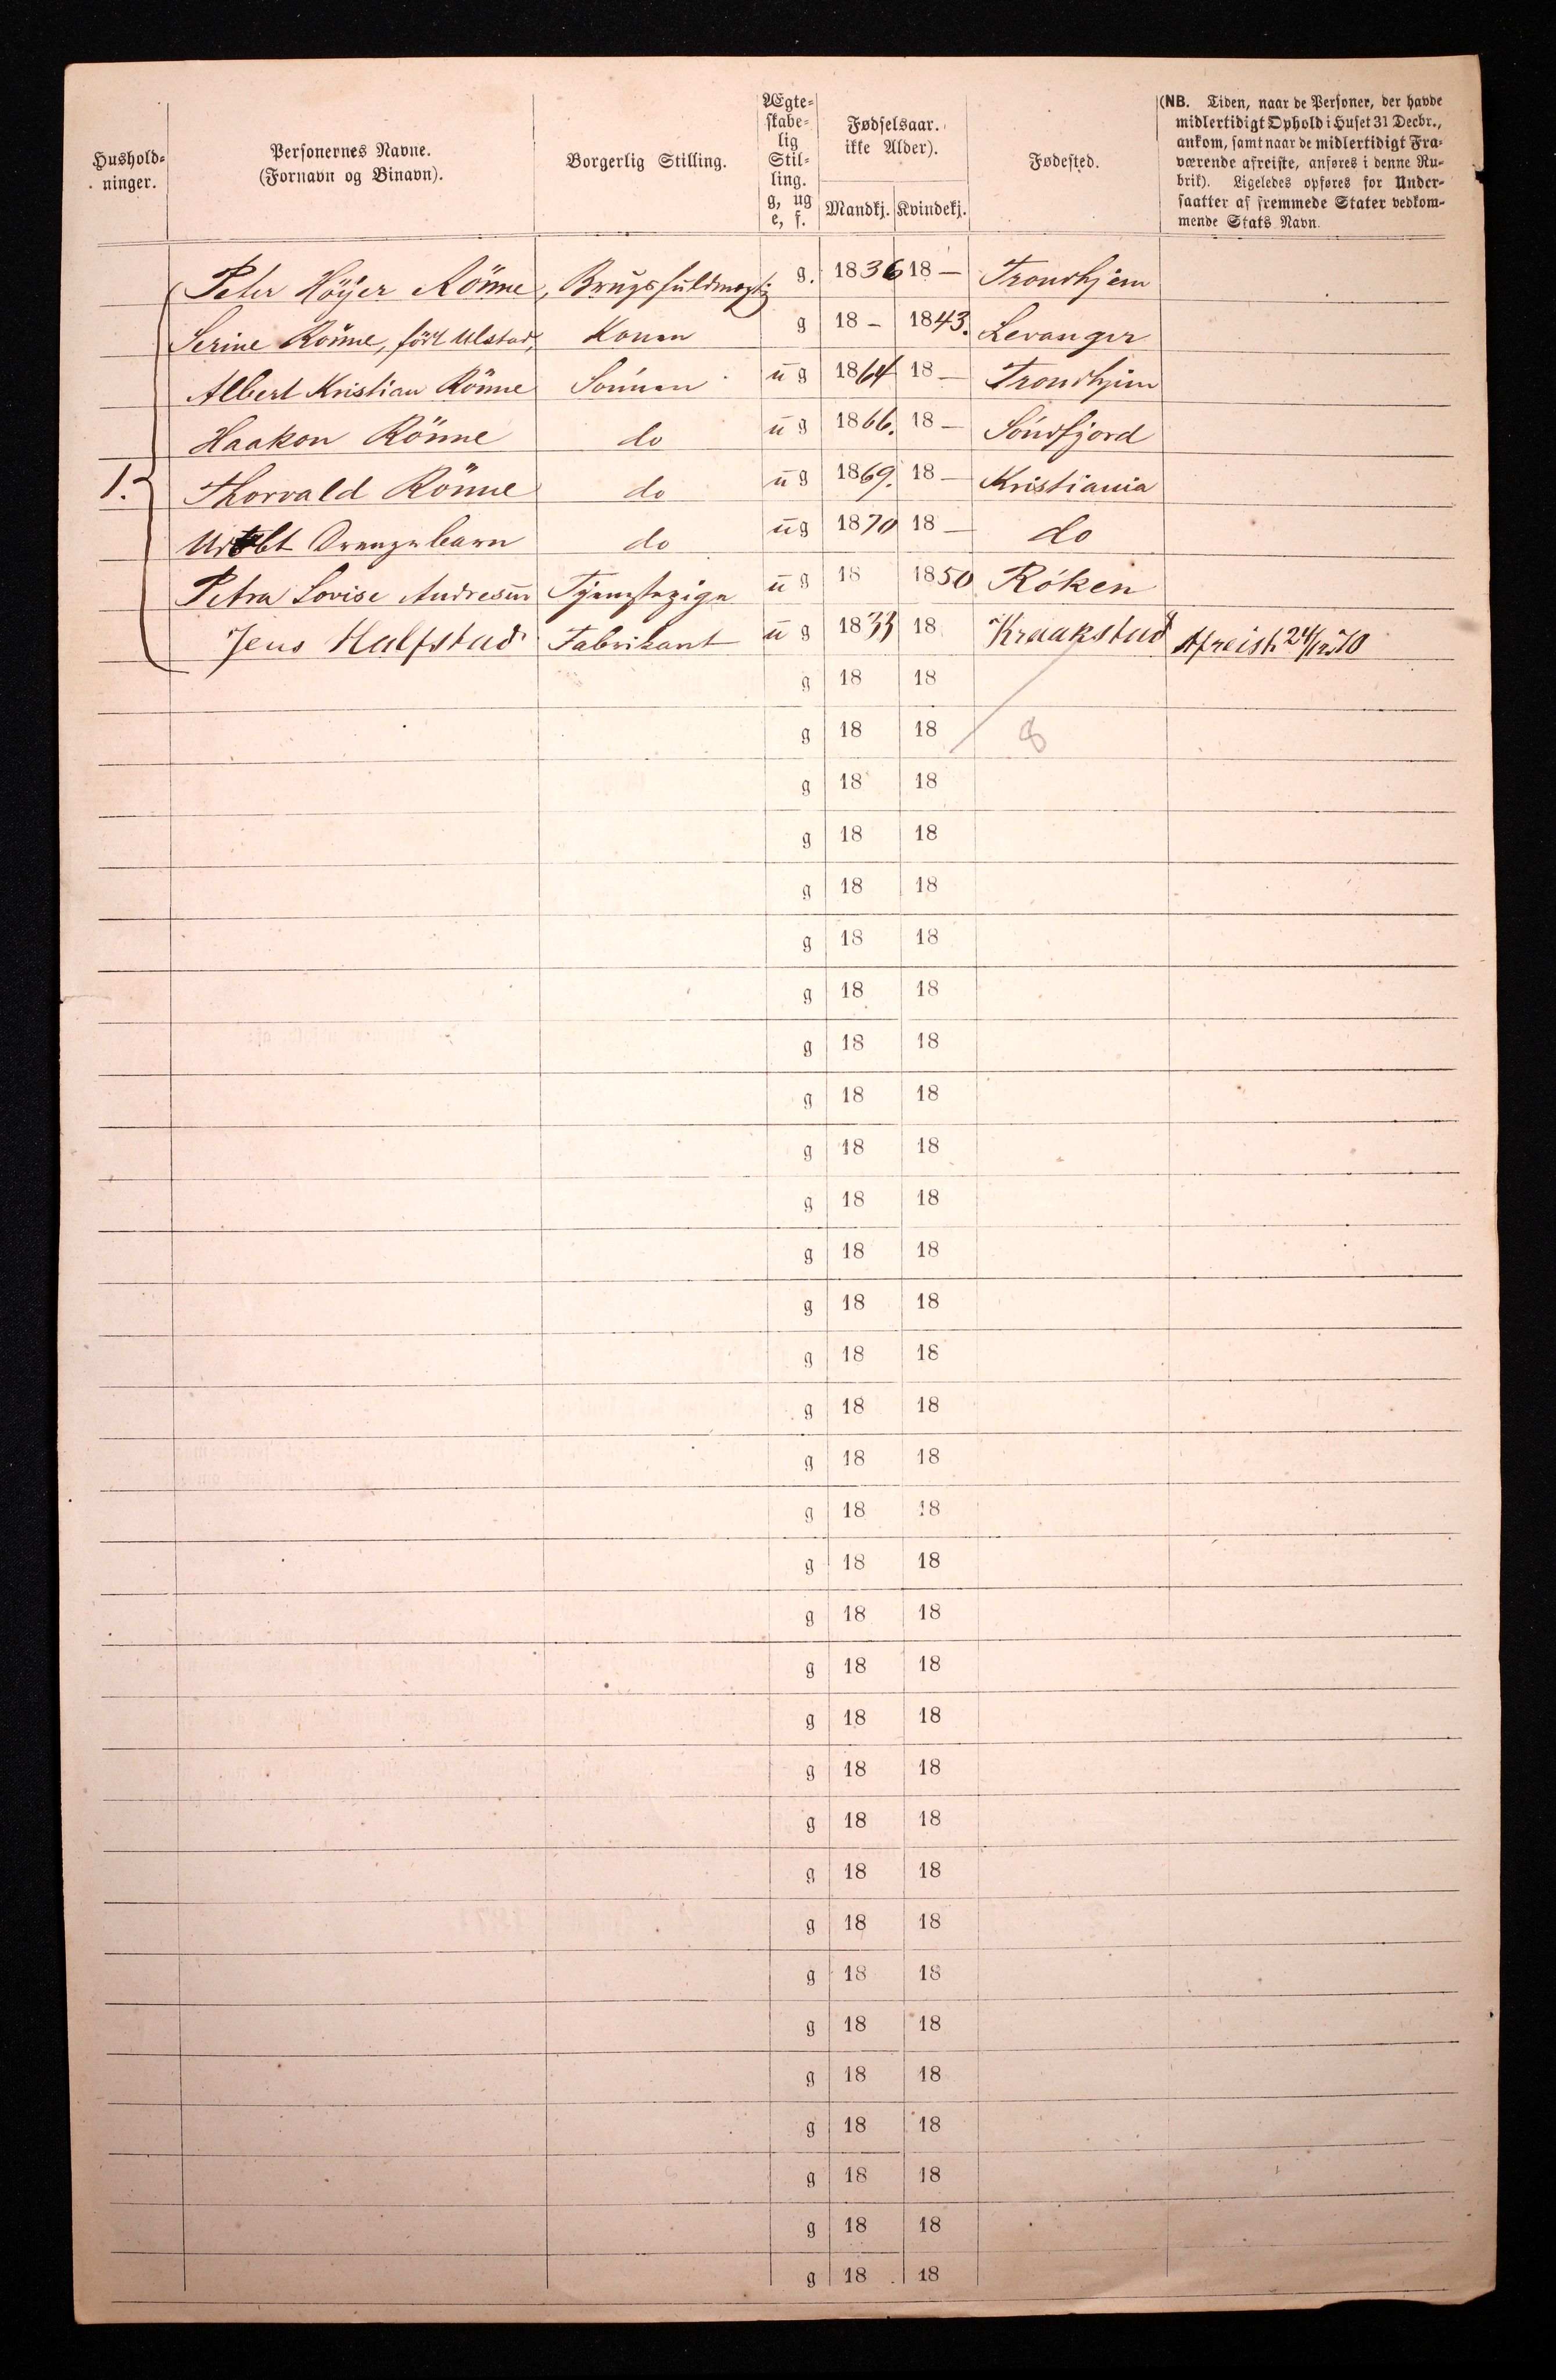 Hushold-
ninger.
Personernes Navne.
(Fornavn og Binavn).
Borgerlig Stilling.
Ægte-
skabe-
lig
Stil-
ling.
g, ug
e, f.
Fødselsaar.
ikke Alder).
Mandkj. Kvindekj.
Fødested.
(NB. Tiden, naar de Personer, der havde
midlertidigt Ophold i Huset 31 Decbr.,
ankom, samt naar de midlertidigt Fra-
værende afreiste, anføres i denne Ru-
brik). Ligeledes opføres for Under-
saatter af fremmede Stater vedkom-
mende Stats Navn.
1.
Peter Höyer Rönne, Brugsfuldmægtig g. 1836 18 — Trondhjem
Serine Rönne, född Ulstad, Konen g 18 – 1843. Levanger
Albert Kristian Rönne Sönnen ug 1864 18 — Trondhjem
Haakon Rönne do ug 1866. 18 — Söndfjord
Thorvald Rönne do ug 1869. 18 — Kristiania
Udöbt Drengebarn do ug 1870 18 — do
Petra Lovise Andresen Tjenestepige ug 18 1850 Röken
Jens Halfstad Fabrikant ug 1833 18 Kraakstad Afreist 24/12 70
g 18 18
g 18 18 8
g 18 18
g 18 18
g 18 18
g 18 18
g 18 18
g 18 18
g 18 18
g 18 18
g 18 18
g 18 18
g 18 18
g 18 18
g 18 18
g 18 18
g 18 18
g 18 18
g 18 18
g 18 18
g 18 18
g 18 18
g 18 18
g 18 18
g 18 18
g 18 18
g 18 18
g 18 18
g 18 18
g 18 18
g 18 18
g 18 18